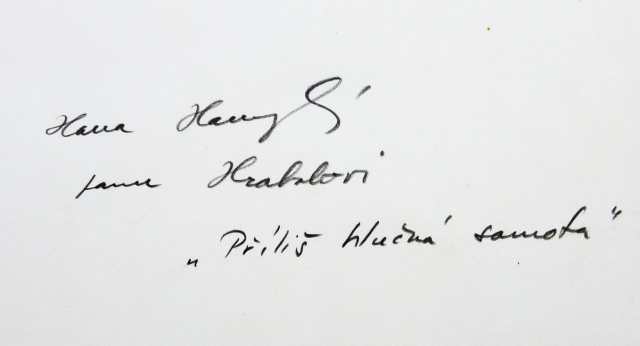 Hana Hamplová
panu Hrabalovi
„Příliš hlučná samota"